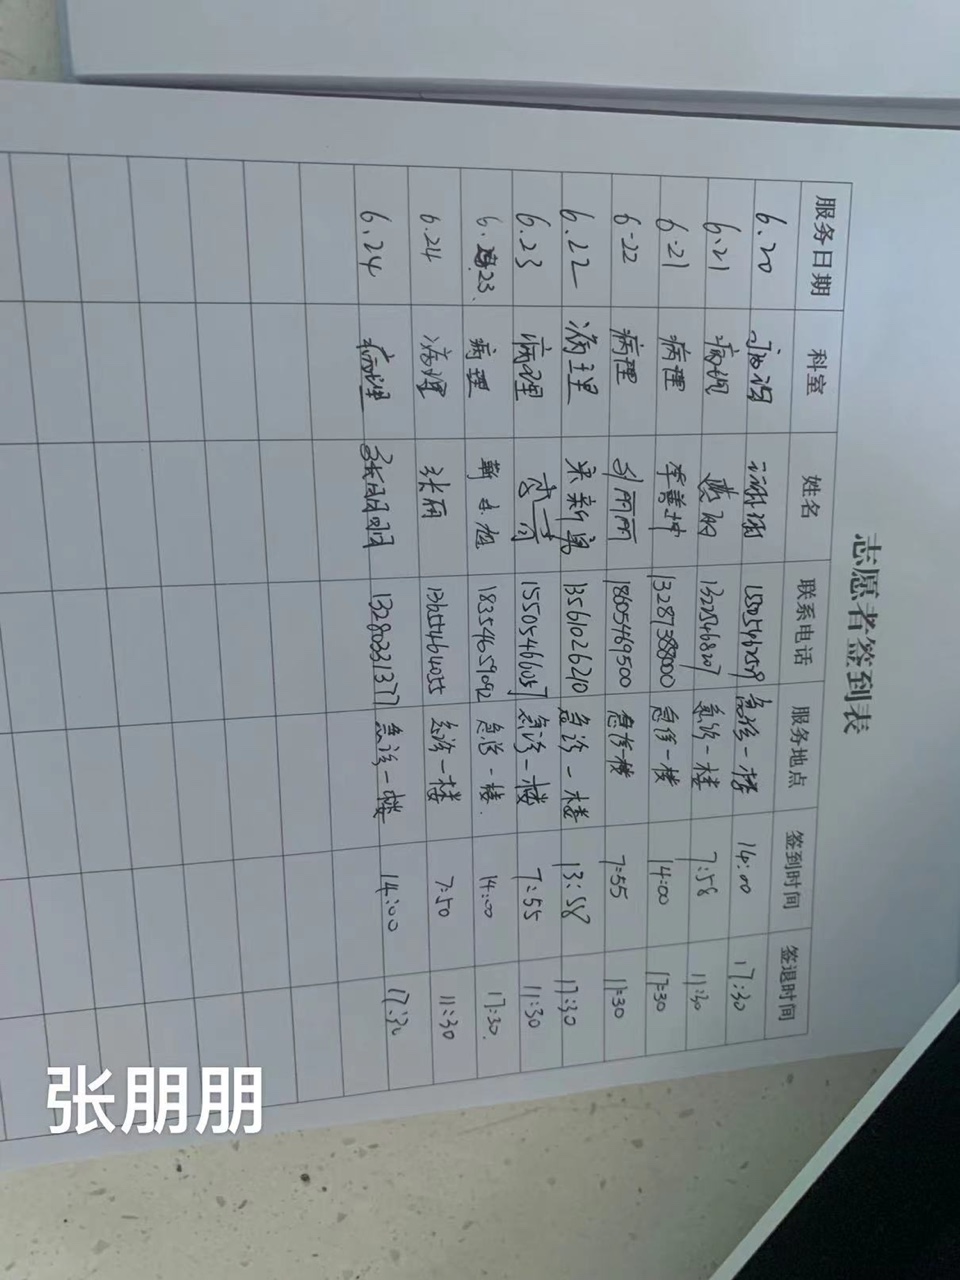 志愿者签到表
服务日期 科室 姓名 联系电话 服务地点 签到时间 签退时间
6.20 急诊一楼 14:00 17:30
6.21 病理 急诊一楼 7:58 11:30
6-21 病理 李善坤 13287388000 急诊一楼 14:00 17:30
6-22 病理 刘丽丽 18605469500 急诊一楼 7:55 11:30
6.22 病理 宋新勇 13561026210 急诊一楼 13:58 17:30
6.23 病理 15505466057 急诊一楼 7:55 11:30
6.23. 病理 18354659092 急诊一楼. 14:00 17:30.
6.24 病理 张丽 13655464055 急诊一楼 7:50 11:30
6.24 病理 张朋朋 13280331377 急诊一楼 14:00 17:30
张朋朋